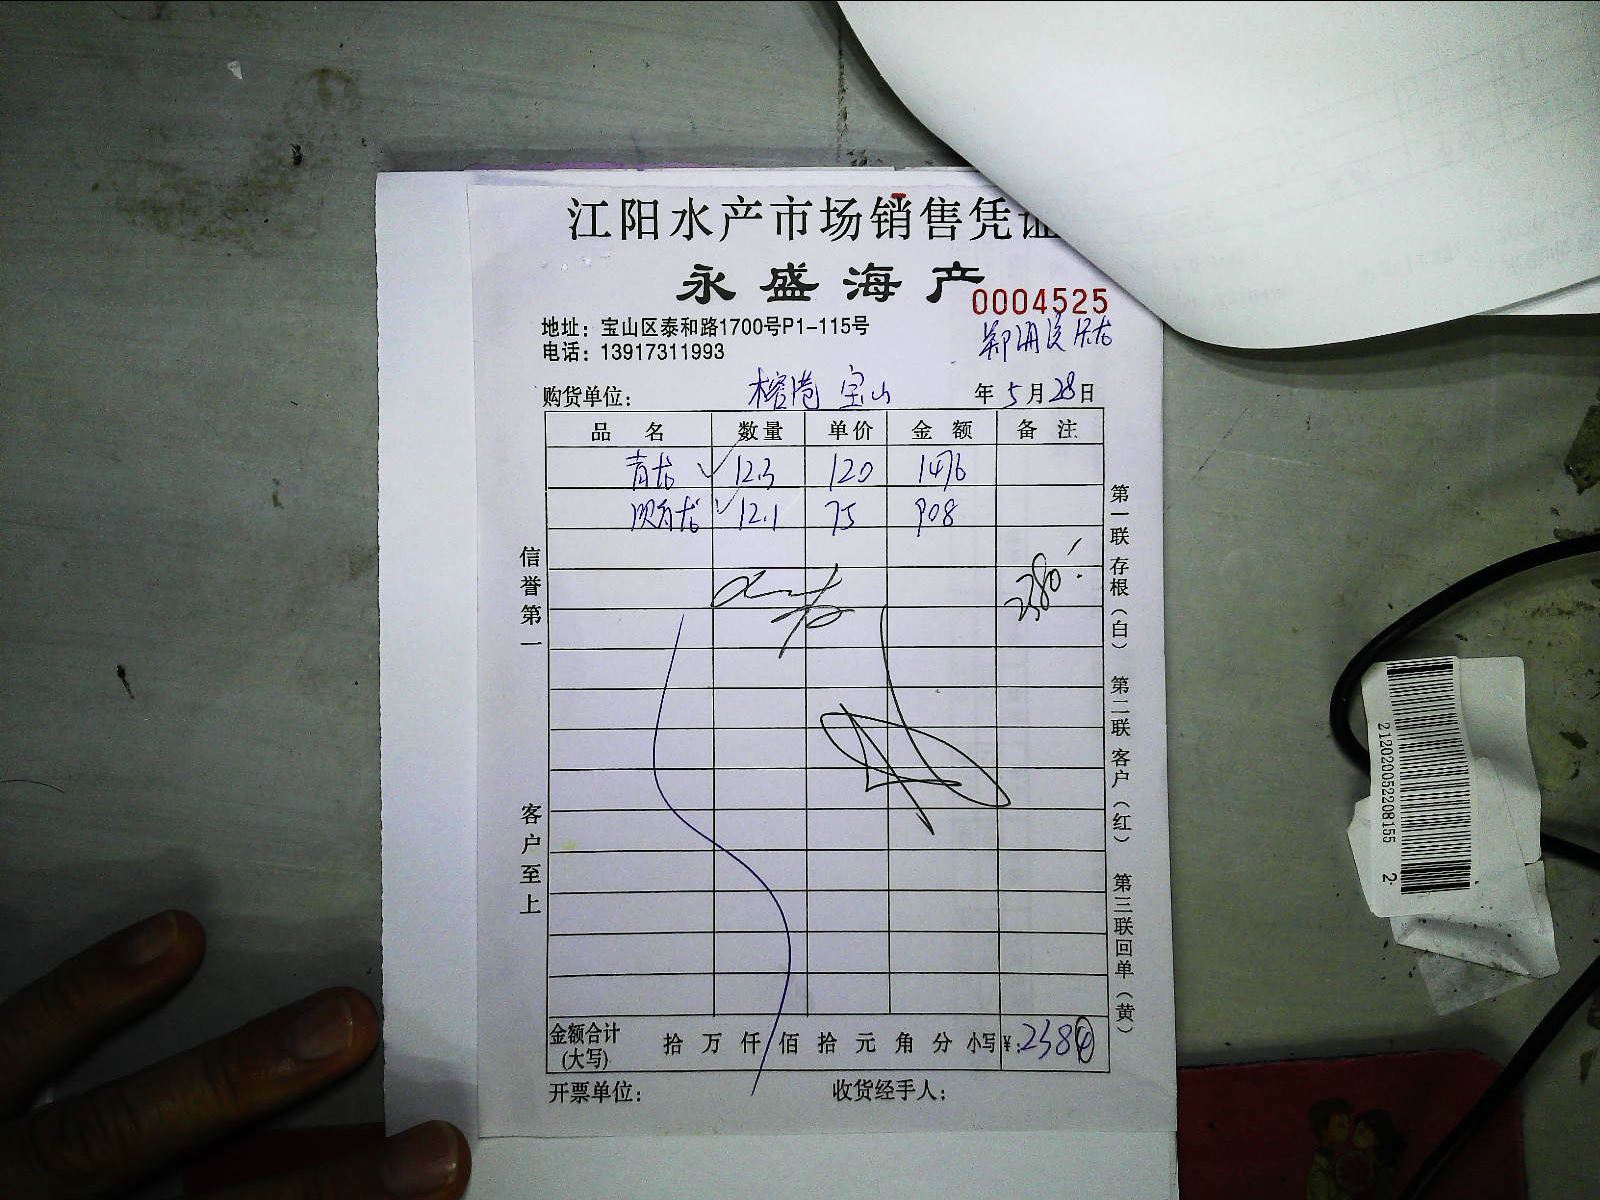 江阳水产市场销售凭证
永盛海产
0004525
地址：宝山区泰和路1700号P1-115号
电话：13917311993
购货单位： 榕港 宝山 年 5 月 28 日
品 名 数量 单价 金 额 备 注
青龙 12.3 120 1476
12.1 75 908
2380
信誉第一
客户至上
第一联存根（白） 第二联客户（红） 第三联回单（黄）
金额合计 拾 万 仟 佰 拾 元 角 分 小写¥：2384
(大写)
开票单位： 收货经手人：
212020052208155 2